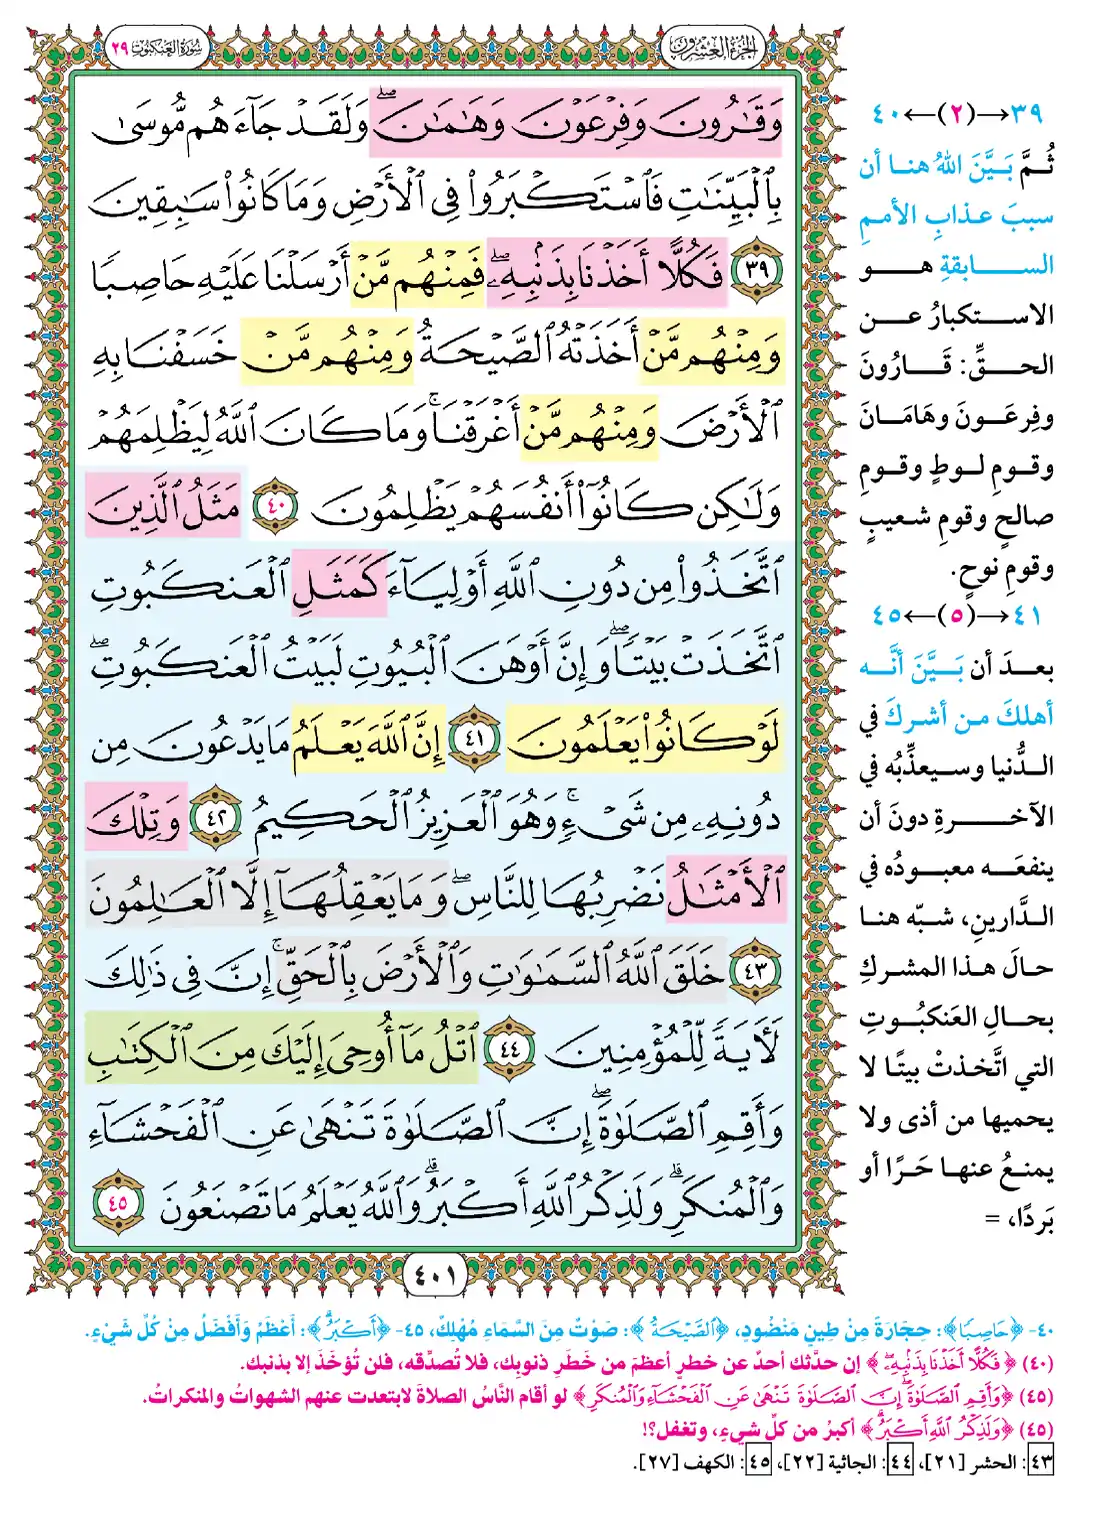 الجزء العشرون
سورة العنكبوت ٢٩
وَقَٰرُونَ وَفِرْعَوْنَ وَهَٰمَٰنَ ۖ وَلَقَدْ جَآءَهُم مُّوسَىٰ
بِٱلْبَيِّنَٰتِ فَٱسْتَكْبَرُوا۟ فِى ٱلْأَرْضِ وَمَا كَانُوا۟ سَٰبِقِينَ
٣٩ فَكُلًّا أَخَذْنَا بِذَنۢبِهِۦ ۖ فَمِنْهُم مَّنْ أَرْسَلْنَا عَلَيْهِ حَاصِبًا
وَمِنْهُم مَّنْ أَخَذَتْهُ ٱلصَّيْحَةُ وَمِنْهُم مَّنْ خَسَفْنَا بِهِ
ٱلْأَرْضَ وَمِنْهُم مَّنْ أَغْرَقْنَا ۚ وَمَا كَانَ ٱللَّهُ لِيَظْلِمَهُمْ
وَلَٰكِن كَانُوٓا۟ أَنفُسَهُمْ يَظْلِمُونَ ٤٠ مَثَلُ ٱلَّذِينَ
ٱتَّخَذُوا۟ مِن دُونِ ٱللَّهِ أَوْلِيَآءَ كَمَثَلِ ٱلْعَنكَبُوتِ
ٱتَّخَذَتْ بَيْتًا ۖ وَإِنَّ أَوْهَنَ ٱلْبُيُوتِ لَبَيْتُ ٱلْعَنكَبُوتِ ۖ
لَوْ كَانُوا۟ يَعْلَمُونَ ٤١ إِنَّ ٱللَّهَ يَعْلَمُ مَا يَدْعُونَ مِن
دُونِهِۦ مِن شَىْءٍ ۚ وَهُوَ ٱلْعَزِيزُ ٱلْحَكِيمُ ٤٢ وَتِلْكَ
ٱلْأَمْثَٰلُ نَضْرِبُهَا لِلنَّاسِ ۖ وَمَا يَعْقِلُهَآ إِلَّا ٱلْعَٰلِمُونَ
٤٣ خَلَقَ ٱللَّهُ ٱلسَّمَٰوَٰتِ وَٱلْأَرْضَ بِٱلْحَقِّ ۚ إِنَّ فِى ذَٰلِكَ
لَءَايَةً لِّلْمُؤْمِنِينَ ٤٤ ٱتْلُ مَآ أُوحِىَ إِلَيْكَ مِنَ ٱلْكِتَٰبِ
وَأَقِمِ ٱلصَّلَوٰةَ ۖ إِنَّ ٱلصَّلَوٰةَ تَنْهَىٰ عَنِ ٱلْفَحْشَآءِ
وَٱلْمُنكَرِ ۗ وَلَذِكْرُ ٱللَّهِ أَكْبَرُ ۗ وَٱللَّهُ يَعْلَمُ مَا تَصْنَعُونَ ٤٥
٤٠١
٣٩→(٢)←٤٠
ثُمَّ بَيَّنَ اللهُ هنا أن
سببَ عذابِ الأممِ
السابقةِ هو
الاستكبارُ عن
الحقِّ: قَارُونَ
وفِرعَونَ وهَامَانَ
وقومِ لوطٍ وقومِ
صالحٍ وقومِ شعيبٍ
وقومِ نوحٍ.
٤١→(٥)←٤٥
بعدَ أن بَيَّنَ أنَّه
أهلكَ من أشركَ في
الدُّنيا وسيعذِّبُه في
الآخرةِ دونَ أن
ينفعَه معبودُه في
الدَّارينِ، شبّه هنا
حالَ هذا المشركِ
بحالِ العَنكبُوتِ
التي اتَّخذتْ بيتًا لا
يحميها من أذى ولا
يمنعُ عنها حَرًا أو
بَردًا، =
٤٠- ﴿حَاصِبًا﴾: حِجَارَةً مِنْ طِينٍ مَنْضُودٍ، ﴿ٱلصَّيْحَةُ﴾: صَوْتٌ مِنَ السَّمَاءِ مُهْلِكٌ، ٤٥- ﴿أَكْبَرُ ۗ﴾: أَعْظَمُ وَأَفْضَلُ مِنْ كُلِّ شَيْءٍ.
(٤٠) ﴿فَكُلًّا أَخَذْنَا بِذَنۢبِهِۦ ۖ﴾ إن حدَّثك أحدٌ عن خطرٍ أعظمَ من خَطَرِ ذنوبِك، فلا تُصدِّقه، فلن تُؤخَذَ إلا بذنبك.
(٤٥) ﴿وَأَقِمِ ٱلصَّلَوٰةَ ۖ إِنَّ ٱلصَّلَوٰةَ تَنْهَىٰ عَنِ ٱلْفَحْشَآءِ وَٱلْمُنكَرِ﴾ لو أقام النَّاسُ الصلاةَ لابتعدت عنهم الشهواتُ والمنكراتُ.
(٤٥) ﴿وَلَذِكْرُ ٱللَّهِ أَكْبَرُ ۗ﴾ أكبرُ من كلِّ شيءٍ، وتغفل؟!
٤٣: الحشر [٢١]، ٤٤: الجاثية [٢٢]، ٤٥: الكهف [٢٧].